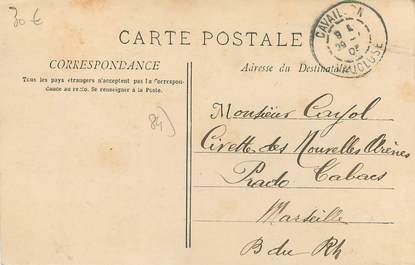 30 €
CAVAILLON
VAUCLUSE
CARTE POSTALE
CORRESPONDANCE
Tous les pays étrangers n'acceptent pas la Correspon-
dance au recto. Se renseigner à la Poste.
Adresse du Destinataire
84)
Monsieur Cayol
Civette des Nouvelles Arènes
Prado Tabacs
Marseille
B du Rh